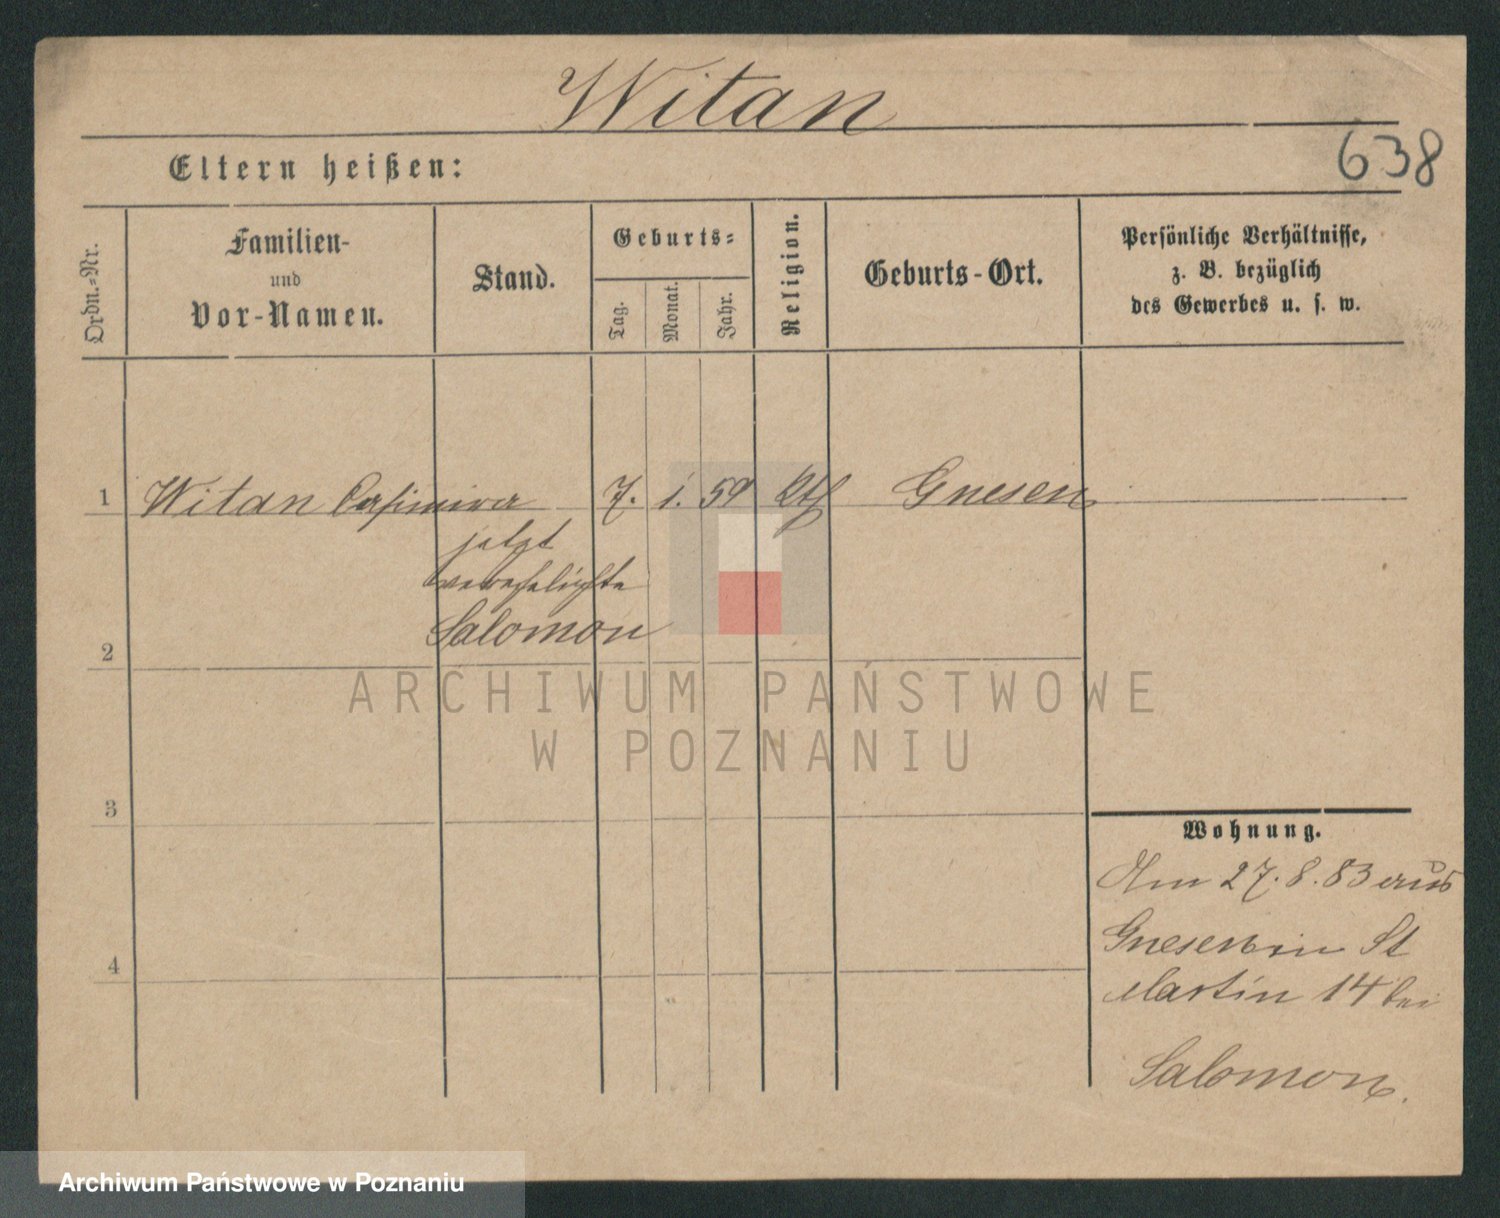 Witan
638
Eltern heißen:
Ordn.-Nr.
Familien-
und
Vor-Namen.
Stand.
Geburts-
Tag.
Monat.
Jahr.
Religion.
Geburts-Ort.
Persönliche Verhältnisse,
z. B. bezüglich
des Gewerbes u. s. w.
1 Witan Casimira 7. 1. 59 kth Gnesen
jetzt
verehelichte
Salomon
2
ARCHIWUM PAŃSTWOWE
W POZNANIU
3
Wohnung.
Am 27.8.83 aus
Gnesen in St
Martin 14 bei
Salomon.
4
Archiwum Państwowe w Poznaniu